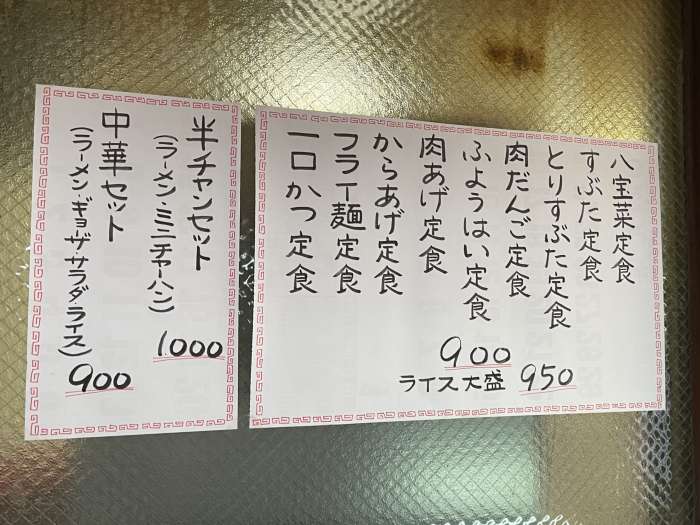 八宝菜定食
すぶた定食
とりすぶた定食
肉だんご定食
ふようはい定食
肉あげ定食
からあげ定食
フライ麺定食
一口かつ定食
900
ライス大盛 950
半チャンセット
(ラーメン・ミニチャーハン)
1.000
中華セット
(ラーメン・ギョーザサラダ・ライス)
900